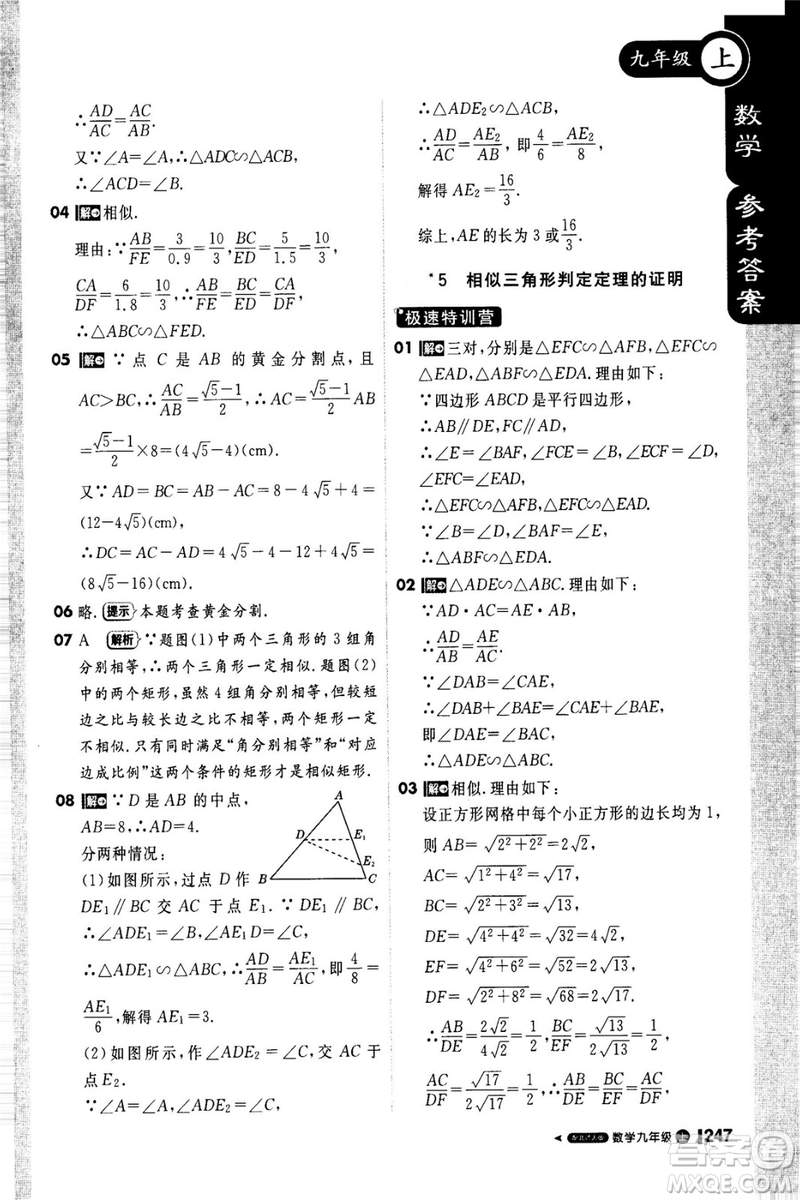 九年级 上
数学 参考答案
∴AD/AC=AC/AB.
又∵∠A=∠A,∴△ADC∽△ACB,
∴∠ACD=∠B.
04 解 相似.
理由:∵AB/FE=3/0.9=10/3,BC/ED=5/1.5=10/3,
CA/DF=6/1.8=10/3,∴AB/FE=BC/ED=CA/DF,
∴△ABC∽△FED.
05 解 ∵点 C 是 AB 的黄金分割点,且
AC>BC,∴AC/AB=(√5-1)/2,∴AC=(√5-1)/2 AB
=(√5-1)/2×8=(4√5-4)(cm).
又∵AD=BC=AB-AC=8-4√5+4=
(12-4√5)(cm),
∴DC=AC-AD=4√5-4-12+4√5=
(8√5-16)(cm).
06 略. 提示 本题考查黄金分割.
07 A 解析 ∵题图(1)中两个三角形的 3 组角
分别相等,∴两个三角形一定相似.题图(2)
中的两个矩形,虽然 4 组角分别相等,但较短
边之比与较长边之比不相等,两个矩形一定
不相似.只有同时满足“角分别相等”和“对应
边成比例”这两个条件的矩形才是相似矩形.
08 解 ∵D 是 AB 的中点,
AB=8,∴AD=4.
分两种情况:
(1)如图所示,过点 D 作
DE1∥BC 交 AC 于点 E1.∵DE1∥BC,
∴∠ADE1=∠B,∠AE1D=∠C,
∴△ADE1∽△ABC,∴AD/AB=AE1/AC,即4/8=
AE1/6,解得 AE1=3.
(2)如图所示,作∠ADE2=∠C,交 AC 于
点 E2.
∵∠A=∠A,∠ADE2=∠C,
A
D
E1
E2
B
C
∴△ADE2∽△ACB,
∴AD/AC=AE2/AB,即4/6=AE2/8,
解得 AE2=16/3.
综上,AE 的长为 3 或16/3.
*5 相似三角形判定定理的证明
极速特训营
01 解 三对,分别是△EFC∽△AFB,△EFC∽
△EAD,△AFB∽△EDA.理由如下:
∵四边形 ABCD 是平行四边形,
∴AB∥DE,FC∥AD.
∴∠E=∠BAF,∠FCE=∠B=∠D,
∠EFC=∠EAD.
∴△EFC∽△AFB,△EFC∽△EAD.
∵∠B=∠D,∠BAF=∠E,
∴△AFB∽△EDA.
02 解 △ADE∽△ABC.理由如下:
∵AD·AC=AE·AB,
∴AD/AB=AE/AC.
∵∠DAB=∠CAE,
∴∠DAB+∠BAE=∠CAE+∠BAE,
即∠DAE=∠BAC,
∴△ADE∽△ABC.
03 解 相似.理由如下:
设正方形网格中每个小正方形的边长均为 1,
则 AB=√(2²+2²)=2√2,
AC=√(1²+4²)=√17,
BC=√(2²+3²)=√13,
DE=√(4²+4²)=√32=4√2,
EF=√(4²+6²)=√52=2√13,
DF=√(2²+8²)=√68=2√17,
∴AB/DE=2√2/4√2=1/2,BC/EF=√13/2√13=1/2,
AC/DF=√17/2√17=1/2,∴AB/DE=BC/EF=AC/DF,
数学九年级 上 1247
答案圈
MXQE.COM